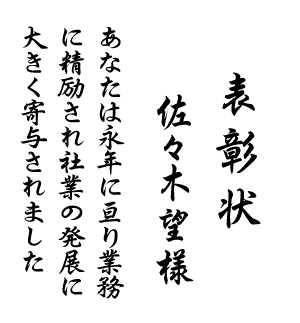 表彰状
佐々木望様
あなたは永年に亘り業務
に精励され社業の発展に
大きく寄与されました